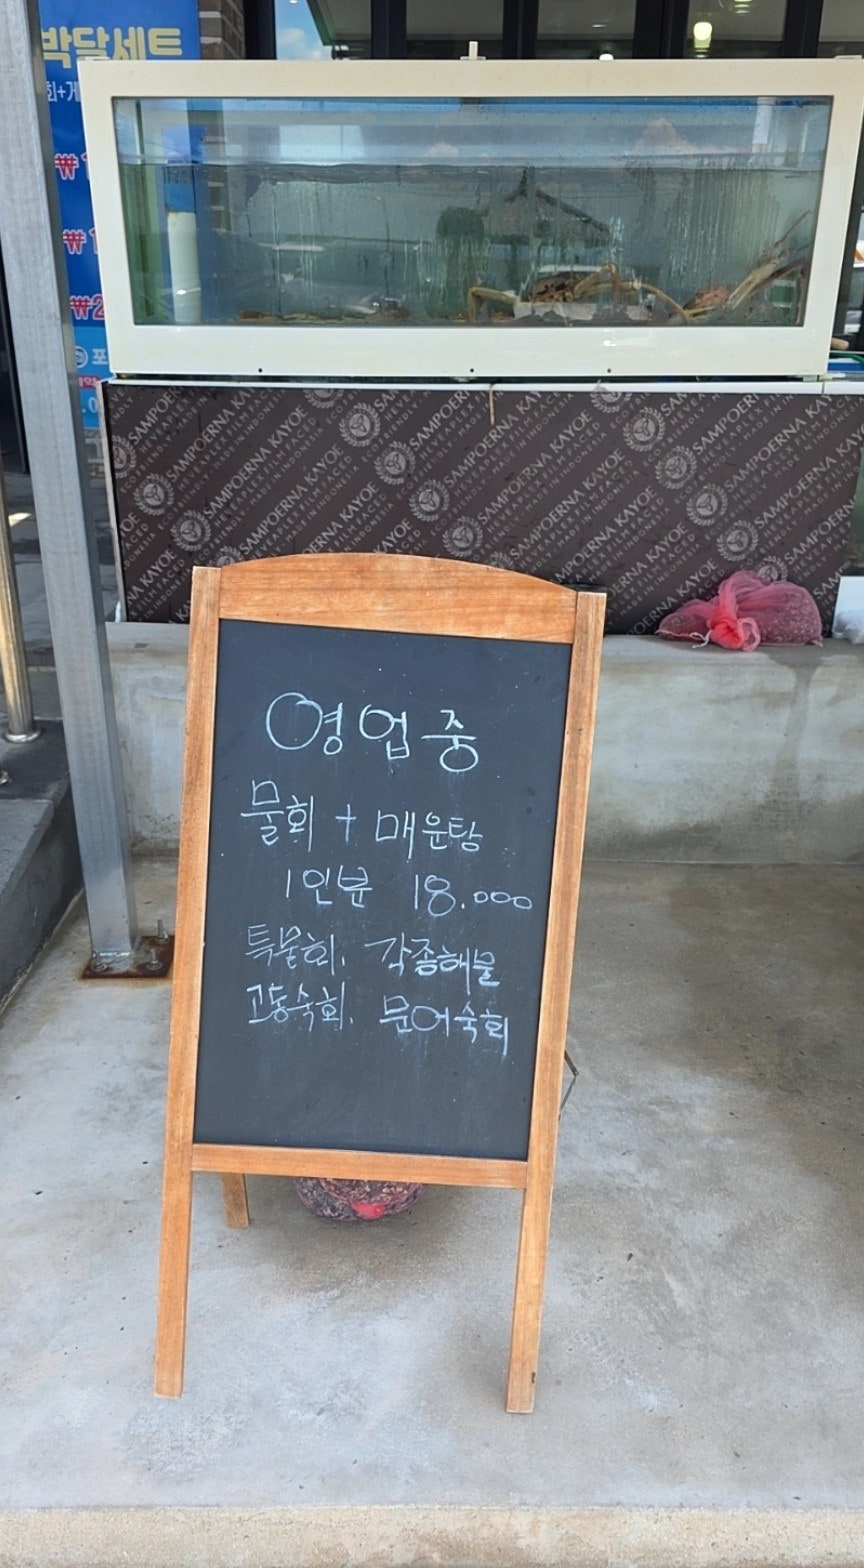 박달세트
회+게
₩1
₩1
₩2
포
SAMPOERNA KAYOE
MADE IN INDONESIA
영업중
물회 + 매운탕
1인분 18.000
특물회. 각종해물
고동숙회. 문어숙회